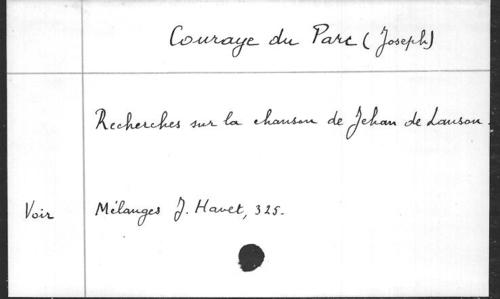 Couraye du Parc (Joseph)
Recherches sur la chanson de Jehan de Lanson.
Voir Mélanges J. Havet, 325.